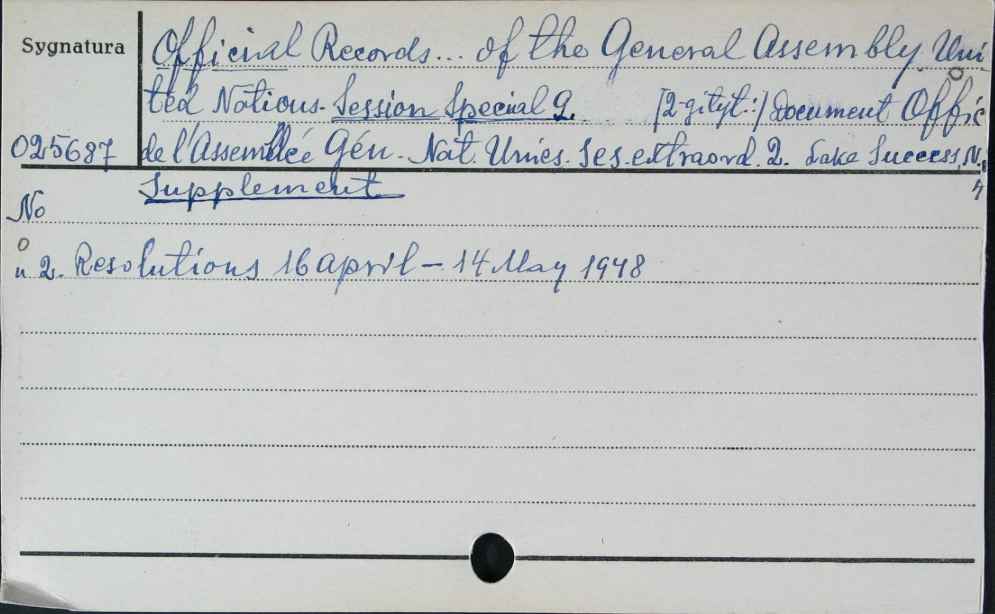 Sygnatura
Official Records... of the General Assembly Uni-
ted Nations. Session Special 2. [2-gi tyt.:] Document Offic
025687 de l'Assemblée Gén. Nat. Unies. Ses. extraord. 2. Lake Success, N.
Y
Supplement
No
n 2. Resolutions 16 April – 14 May 1948